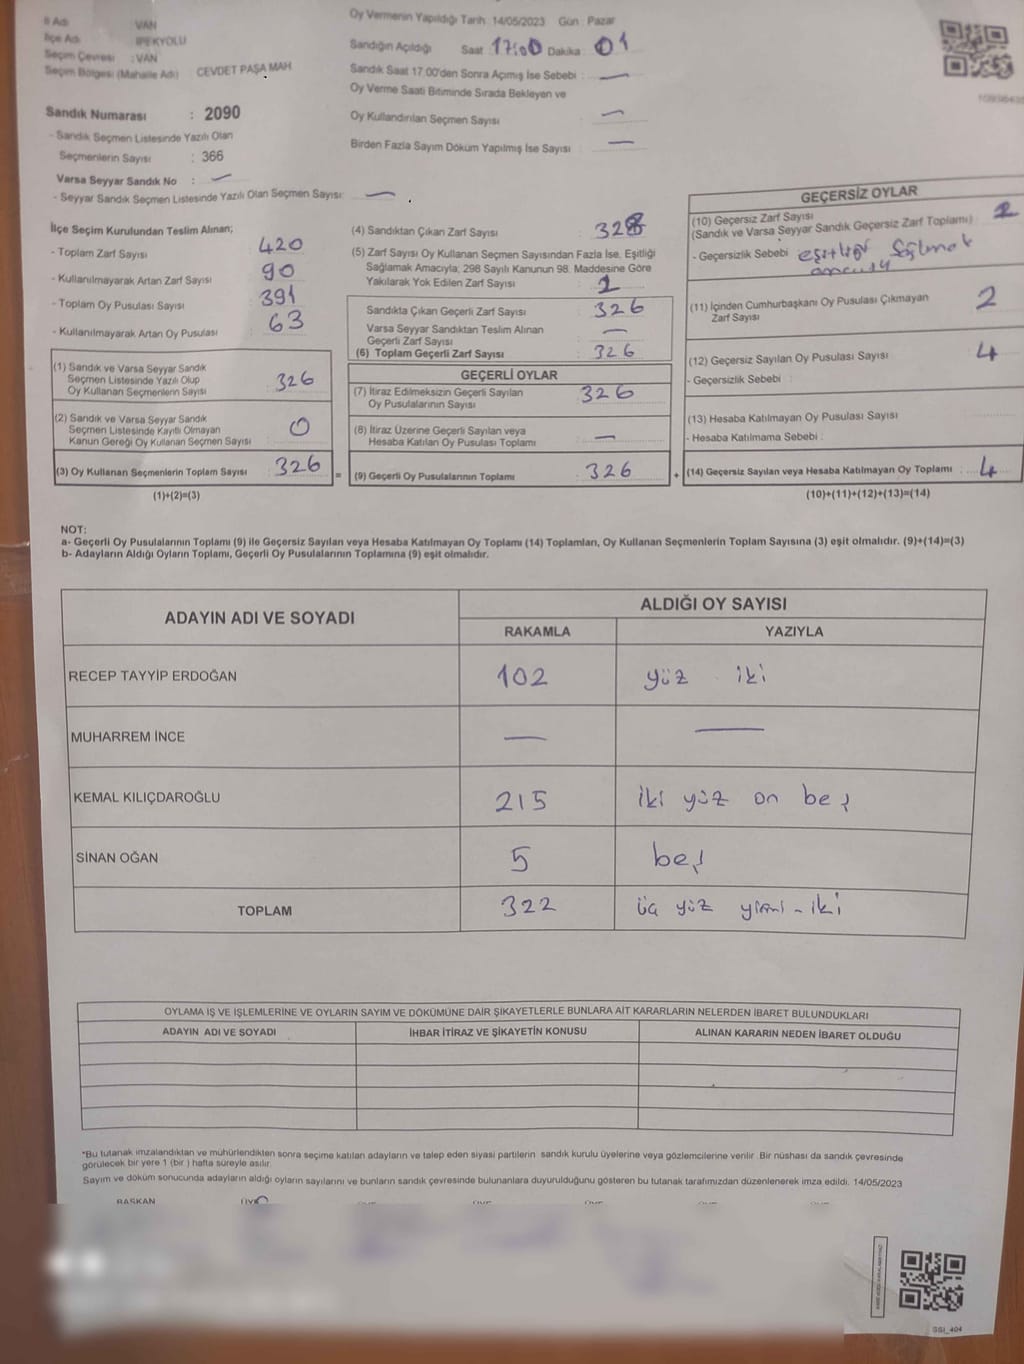 İl Adı VAN
İlçe Adı İPEKYOLU
Seçim Çevresi : VAN
Seçim Bölgesi (Mahalle Adı) : CEVDET PAŞA MAH.
Sandık Numarası : 2090
- Sandık Seçmen Listesinde Yazılı Olan
Seçmenlerin Sayısı : 366
Varsa Seyyar Sandık No : —
- Seyyar Sandık Seçmen Listesinde Yazılı Olan Seçmen Sayısı: —
Oy Vermenin Yapıldığı Tarih :14/05/2023 Gün : Pazar
Sandığın Açıldığı Saat : 17:00 Dakika : 01
Sandık Saat 17.00'den Sonra Açımış İse Sebebi : —
Oy Verme Saati Bitiminde Sırada Bekleyen ve
Oy Kullandırılan Seçmen Sayısı : —
Birden Fazla Sayım Döküm Yapılmış İse Sayısı : —
İlçe Seçim Kurulundan Teslim Alınan;
- Toplam Zarf Sayısı : 420
- Kullanılmayarak Artan Zarf Sayısı : 90
- Toplam Oy Pusulası Sayısı : 391
- Kullanılmayarak Artan Oy Pusulası : 63
(1) Sandık ve Varsa Seyyar Sandık
Seçmen Listesinde Yazılı Olup
Oy Kullanan Seçmenlerin Sayısı : 326
(2) Sandık ve Varsa Seyyar Sandık
Seçmen Listesinde Kayıtlı Olmayan
Kanun Gereği Oy Kullanan Seçmen Sayısı : 0
(3) Oy Kullanan Seçmenlerin Toplam Sayısı : 326 =
(1)+(2)=(3)
(4) Sandıktan Çıkan Zarf Sayısı : 328
(5) Zarf Sayısı Oy Kullanan Seçmen Sayısından Fazla İse, Eşitliği
Sağlamak Amacıyla; 298 Sayılı Kanunun 98. Maddesine Göre
Yakılarak Yok Edilen Zarf Sayısı : 2
Sandıkta Çıkan Geçerli Zarf Sayısı : 326
Varsa Seyyar Sandıktan Teslim Alınan
Geçerli Zarf Sayısı : —
(6) Toplam Geçerli Zarf Sayısı : 326
GEÇERLİ OYLAR
(7) İtiraz Edilmeksizin Geçerli Sayılan
Oy Pusulalarının Sayısı : 326
(8) İtiraz Üzerine Geçerli Sayılan veya
Hesaba Katılan Oy Pusulası Toplamı : —
(9) Geçerli Oy Pusulalarının Toplamı : 326 +
GEÇERSİZ OYLAR
(10) Geçersiz Zarf Sayısı
(Sandık ve Varsa Seyyar Sandık Geçersiz Zarf Toplamı) : 2
- Geçersizlik Sebebi : eşitliği sağlamak
(11) İçinden Cumhurbaşkanı Oy Pusulası Çıkmayan
Zarf Sayısı : 2
(12) Geçersiz Sayılan Oy Pusulası Sayısı : 4
- Geçersizlik Sebebi :
(13) Hesaba Katılmayan Oy Pusulası Sayısı :
- Hesaba Katılmama Sebebi :
(14) Geçersiz Sayılan veya Hesaba Katılmayan Oy Toplamı : 4
(10)+(11)+(12)+(13)=(14)
NOT:
a- Geçerli Oy Pusulalarının Toplamı (9) ile Geçersiz Sayılan veya Hesaba Katılmayan Oy Toplamı (14) Toplamları, Oy Kullanan Seçmenlerin Toplam Sayısına (3) eşit olmalıdır. (9)+(14)=(3)
b- Adayların Aldığı Oyların Toplamı, Geçerli Oy Pusulalarının Toplamına (9) eşit olmalıdır.
ADAYIN ADI VE SOYADI ALDIĞI OY SAYISI
RAKAMLA YAZIYLA
RECEP TAYYİP ERDOĞAN 102 yüz iki
MUHARREM İNCE — —
KEMAL KILIÇDAROĞLU 215 iki yüz on beş
SİNAN OĞAN 5 beş
TOPLAM 322 üç yüz yirmi - iki
OYLAMA İŞ VE İŞLEMLERİNE VE OYLARIN SAYIM VE DÖKÜMÜNE DAİR ŞİKAYETLERLE BUNLARA AİT KARARLARIN NELERDEN İBARET BULUNDUKLARI
ADAYIN ADI VE SOYADI İHBAR İTİRAZ VE ŞİKAYETİN KONUSU ALINAN KARARIN NEDEN İBARET OLDUĞU
*Bu tutanak imzalandıktan ve mühürlendikten sonra seçime katılan adayların ve talep eden siyasi partilerin sandık kurulu üyelerine veya gözlemcilerine verilir. Bir nüshası da sandık çevresinde
görülecek bir yere 1 (bir ) hafta süreyle asılır.
Sayım ve döküm sonucunda adayların aldığı oyların sayılarını ve bunların sandık çevresinde bulunanlara duyurulduğunu gösteren bu tutanak tarafımızdan düzenlenerek imza edildi. 14/05/2023
BAŞKAN
GSI_404